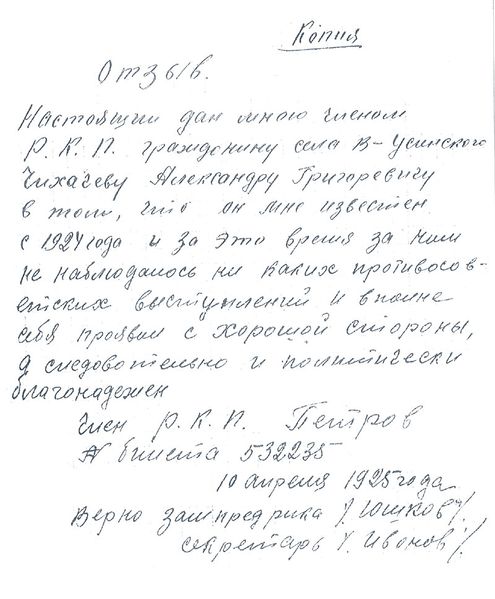 Копия
Отзыв.
Настоящий дан мною членом
Р.К.П. гражданину села В-Усинского
Чихачеву Александру Григоревичу
в том, что он мне известен
с 1924 года и за это время за ним
не наблюдалось ни каких противосов-
етских выступлений и вполне
себя проявил с хорошой стороны,
а следовательно и политически
благонадежен
Член Р.К.П. Петров
№ билета 532235
10 апреля 1925 года
Верно зампредрика /Юшков/
секретарь /Иванов/